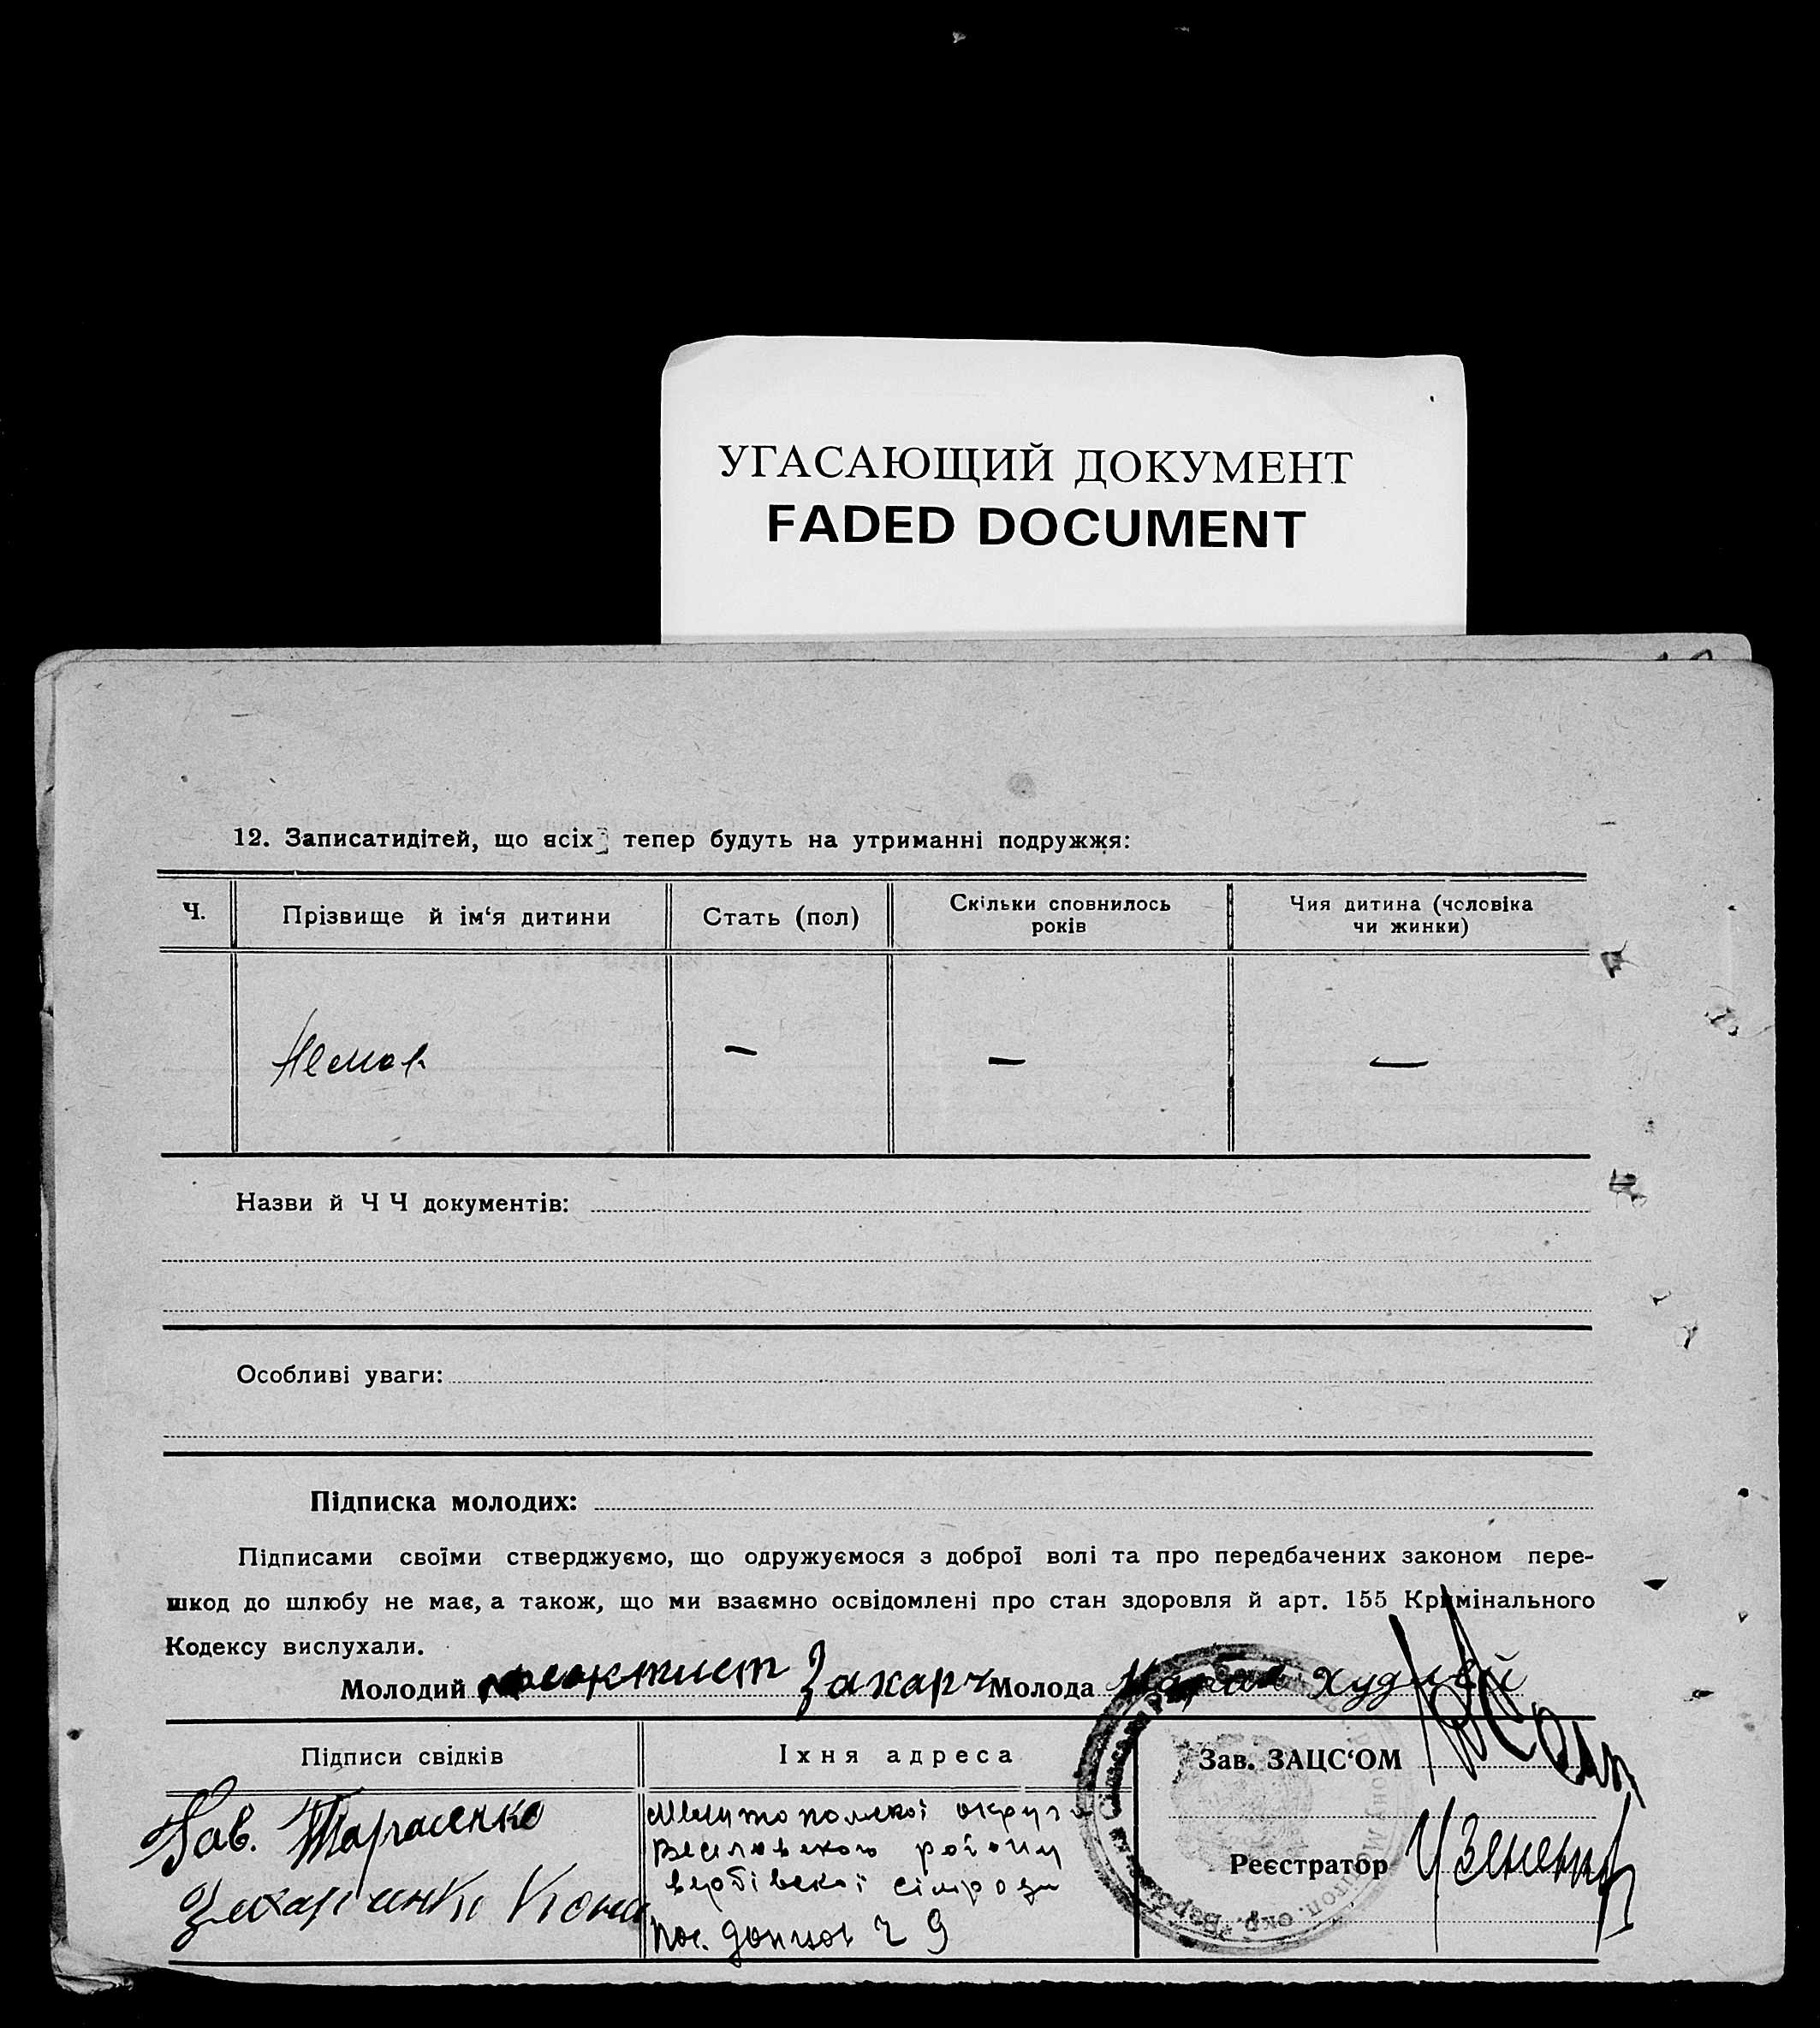 УГАСАЮЩИЙ ДОКУМЕНТ
FADED DOCUMENT
12. Записатидітей, що всіх тепер будуть на утриманні подружжя:
Ч.
Прізвище й ім‘я дитини
Стать (пол)
Скільки сповнилось
років
Чия дитина (чоловіка
чи жинки)
Немає
—
—
—
Назви й Ч Ч документів:
Особливі уваги:
Підписка молодих:
Підписами своїми стверджуємо, що одружуємося з доброї волі та про передбачених законом пере-
шкод до шлюбу не має, а також, що ми взаємно освідомлені про стан здоровля й арт. 155 Кримінального
Кодексу вислухали.
Молодий Феоктист Захарч Молода
Підписи свідків
Їхня адреса
Зав. ЗАЦС‘ОМ
Сав. Тарасенко
Мелитополскої округи
Веселовского району
вербівскої сілради
пос. донцов ч 9
Реєстратор